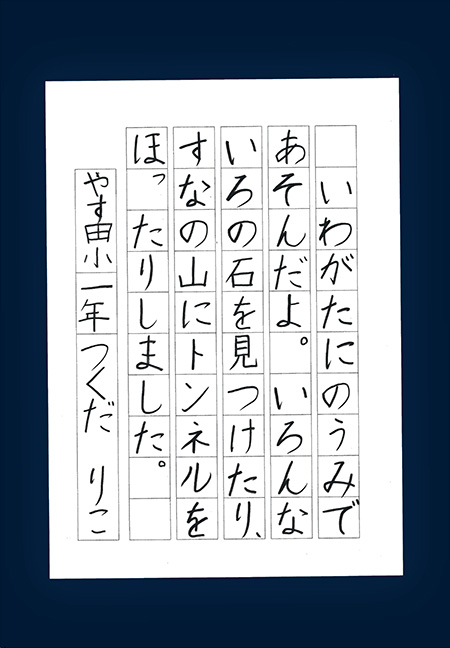 いわがたにのうみで
あそんだよ。いろんな
いろの石を見つけたり、
すなの山にトンネルを
ほったりしました。
やす由小一年つくだ　りこ